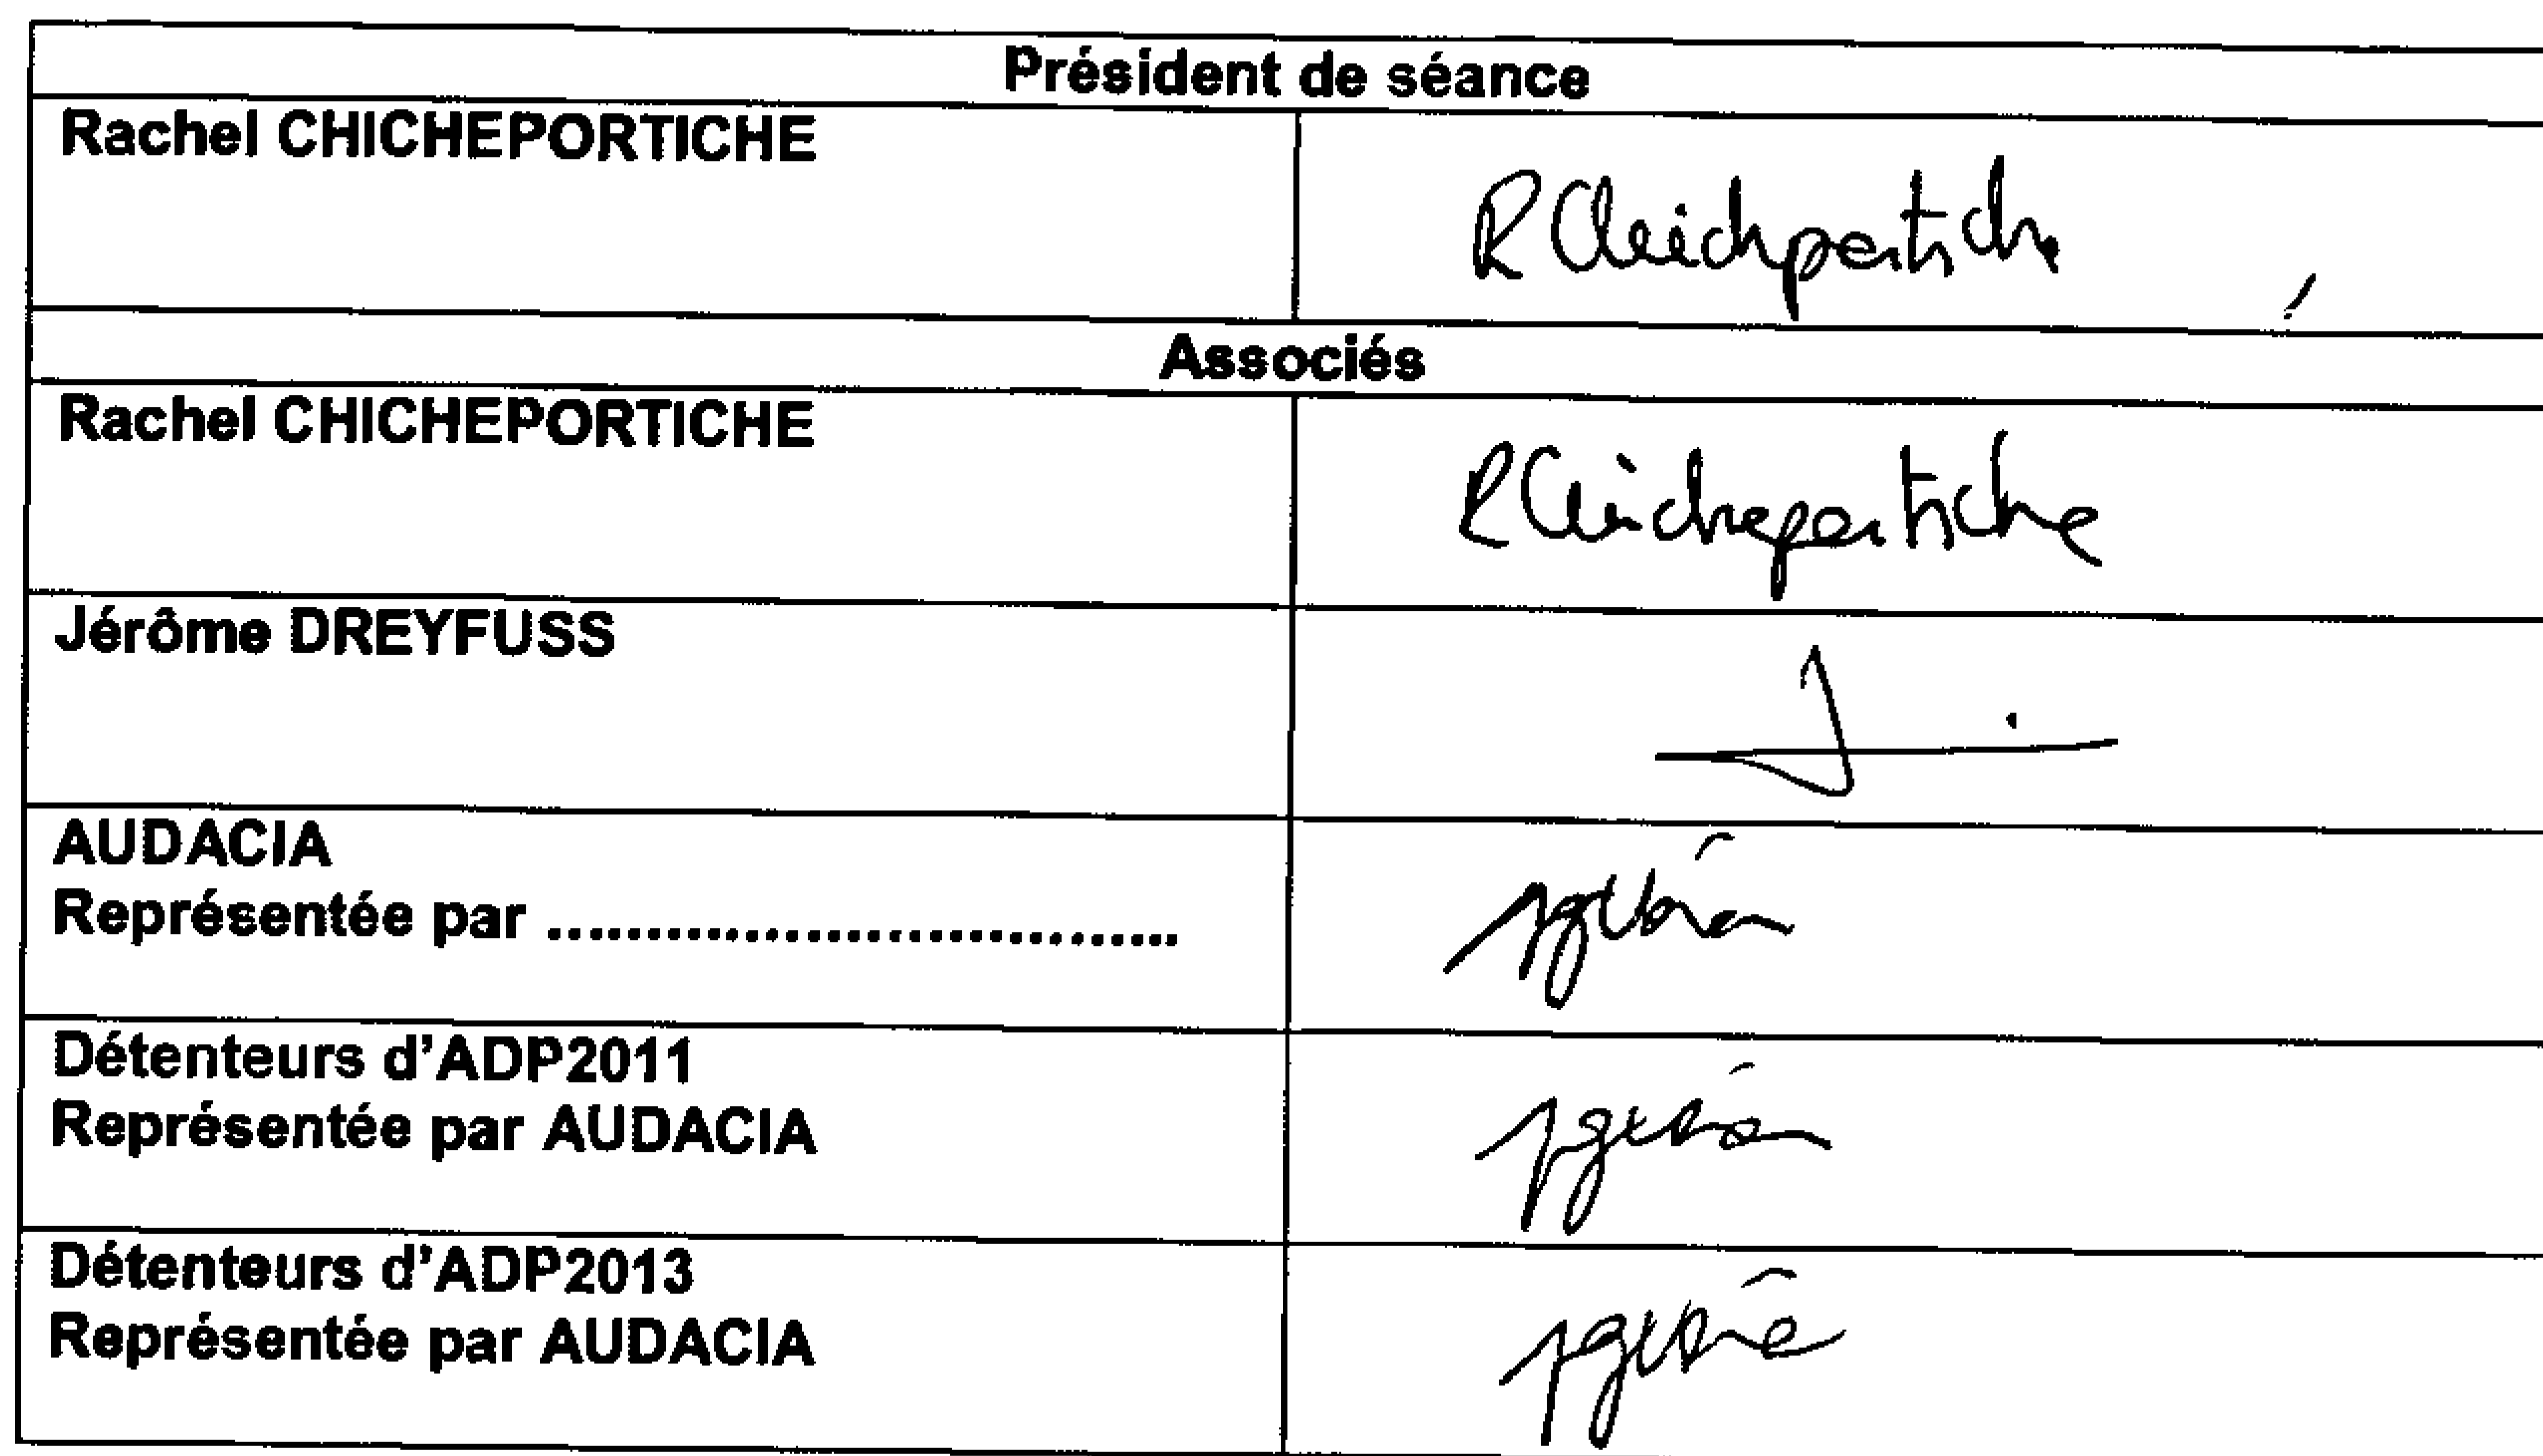 Président de séance
Rachel CHICHEPORTICHE
Associés
Rachel CHICHEPORTICHE
RChicheportiche
Jérôme DREYFUSS
AUDACIA
Représentée par ................................
Détenteurs d'ADP2011
Représentée par AUDACIA
Détenteurs d'ADP2013
Représentée par AUDACIA